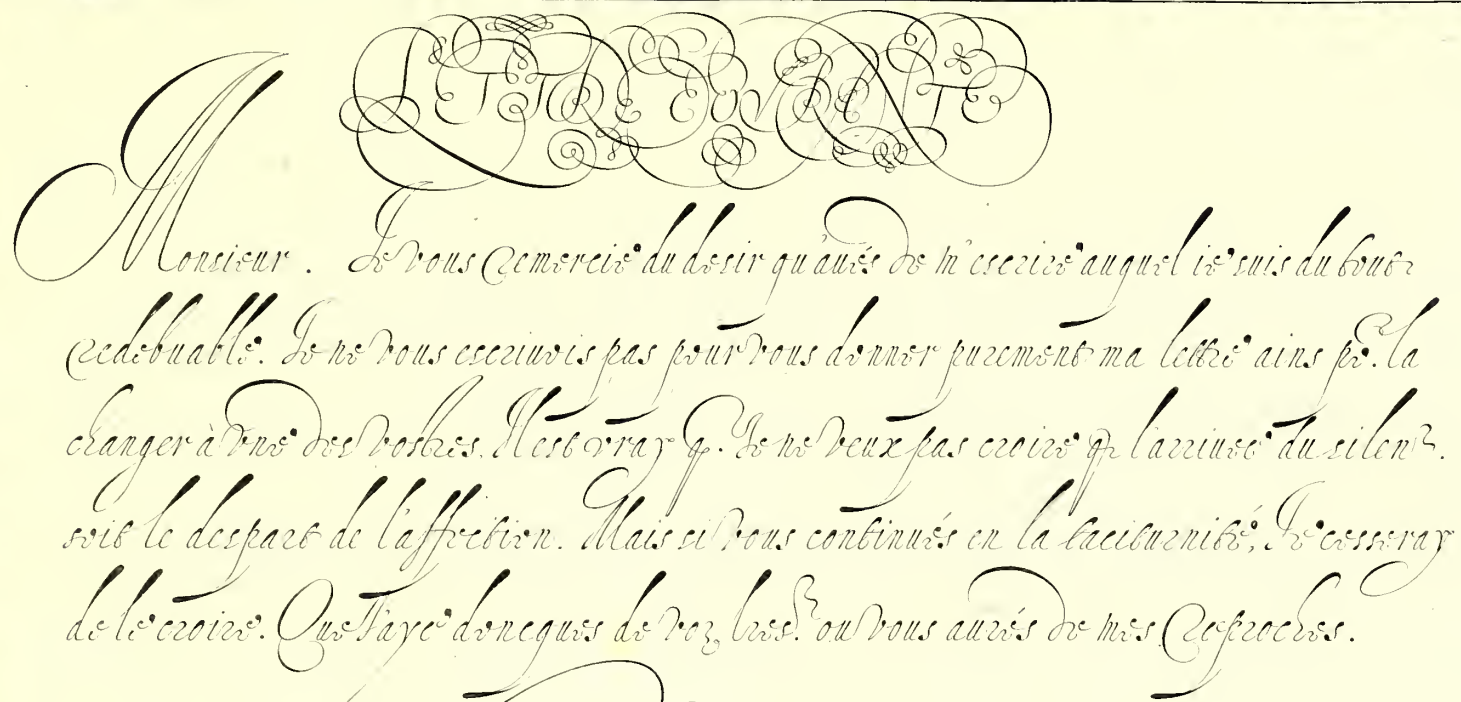 LETTRE OUVERTE
Monsieur. Je vous remercie du desir qu'aués de m'escrire auquel ie suis du tout
redebuable. Je ne vous escriuois pas pour vous donner purement ma lettre ains pr. la
changer à vne des vostres. Il est vray q. Je ne veux pas croire q l'arriuee du silence.
soit le despart de l'affection. Mais si vous continués en la taciturnité, Je cesseray
de le croire. Que J'aye doncques de voz lres. ou vous aurés de mes Reproches.